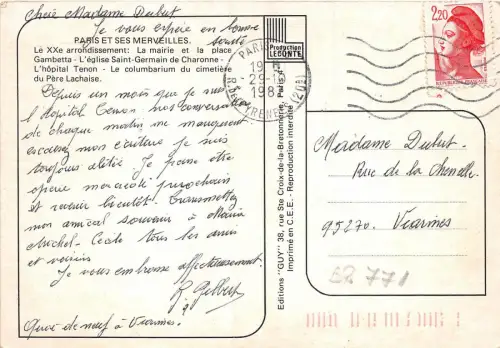 Chère Madame Dubut
Je vous espère en bonne
santé
PARIS ET SES MERVEILLES.
Le XXe arrondissement: La mairie et la place
Gambetta - L'église Saint-Germain de Charonne -
L'hôpital Tenon - Le columbarium du cimetière
du Père Lachaise.
Depuis un mois que je suis
l'hôpital Tenon nos conversations
de chaque matin me manquent
excusez mon écriture je suis
toujours alitée Je passe
opérée mercredi prochain
et retour bientôt. Transmettez
mon amical souvenir à
Michel - Cécile tous les amis
et voisins
Je vous embrasse affectueusement.
Quoi de neuf à Viarmes.
Production
LECONTE
Editions "GUY" 38, rue Ste Croix-de-la-Bretonnerie, Paris 4e
Imprimé en C.E.E. - Reproduction interdite
PARIS
R. DES PYRENEES (20e)
2,20
Madame Dubut
Rue de la Chenelle
95270. Viarmes